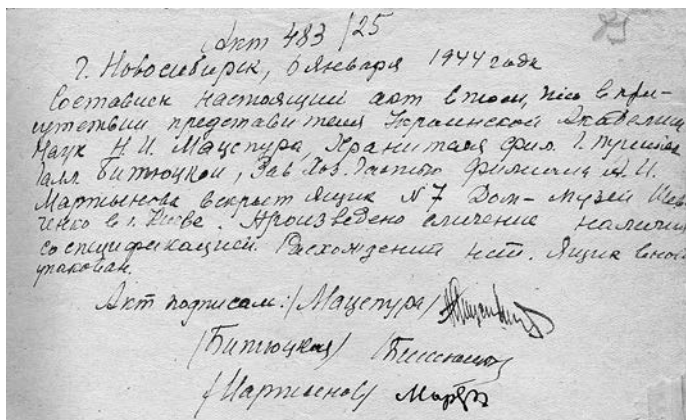 Акт 483/25
г. Новосибирск, 6 января 1944 года
Составлен настоящий акт в том, что в при-
сутствии представителя Украинской Академии
Наук Н.И. Мацепура, Хранителя фил. Г.
Галл. Битюцкой, Зав. Хоз. Частью Филиала А.И.
Мартынова вскрыт ящик N 7 Дом-Музей Шев-
ченко в г. Киеве. Произведено сличение наличия
со спецификацией. Расхождений нет. Ящик вновь
упакован.
Акт подписали: /Мацепура/
/Битюцкая/
/Мартынов/